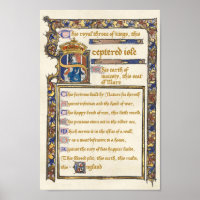 This royal throne of kings, this
Sceptered isle
This earth of
majesty, this seat
of Mars
This fortress built by Nature for herself
Against infection and the hand of war,
This happy breed of men, this little world
This precious stone set in the silver sea
Which serves it in the office of a wall,
Or as a moat defensive to a house,
Against the envy of less happier lands,
This blessed plot, this earth, this realm,
this England